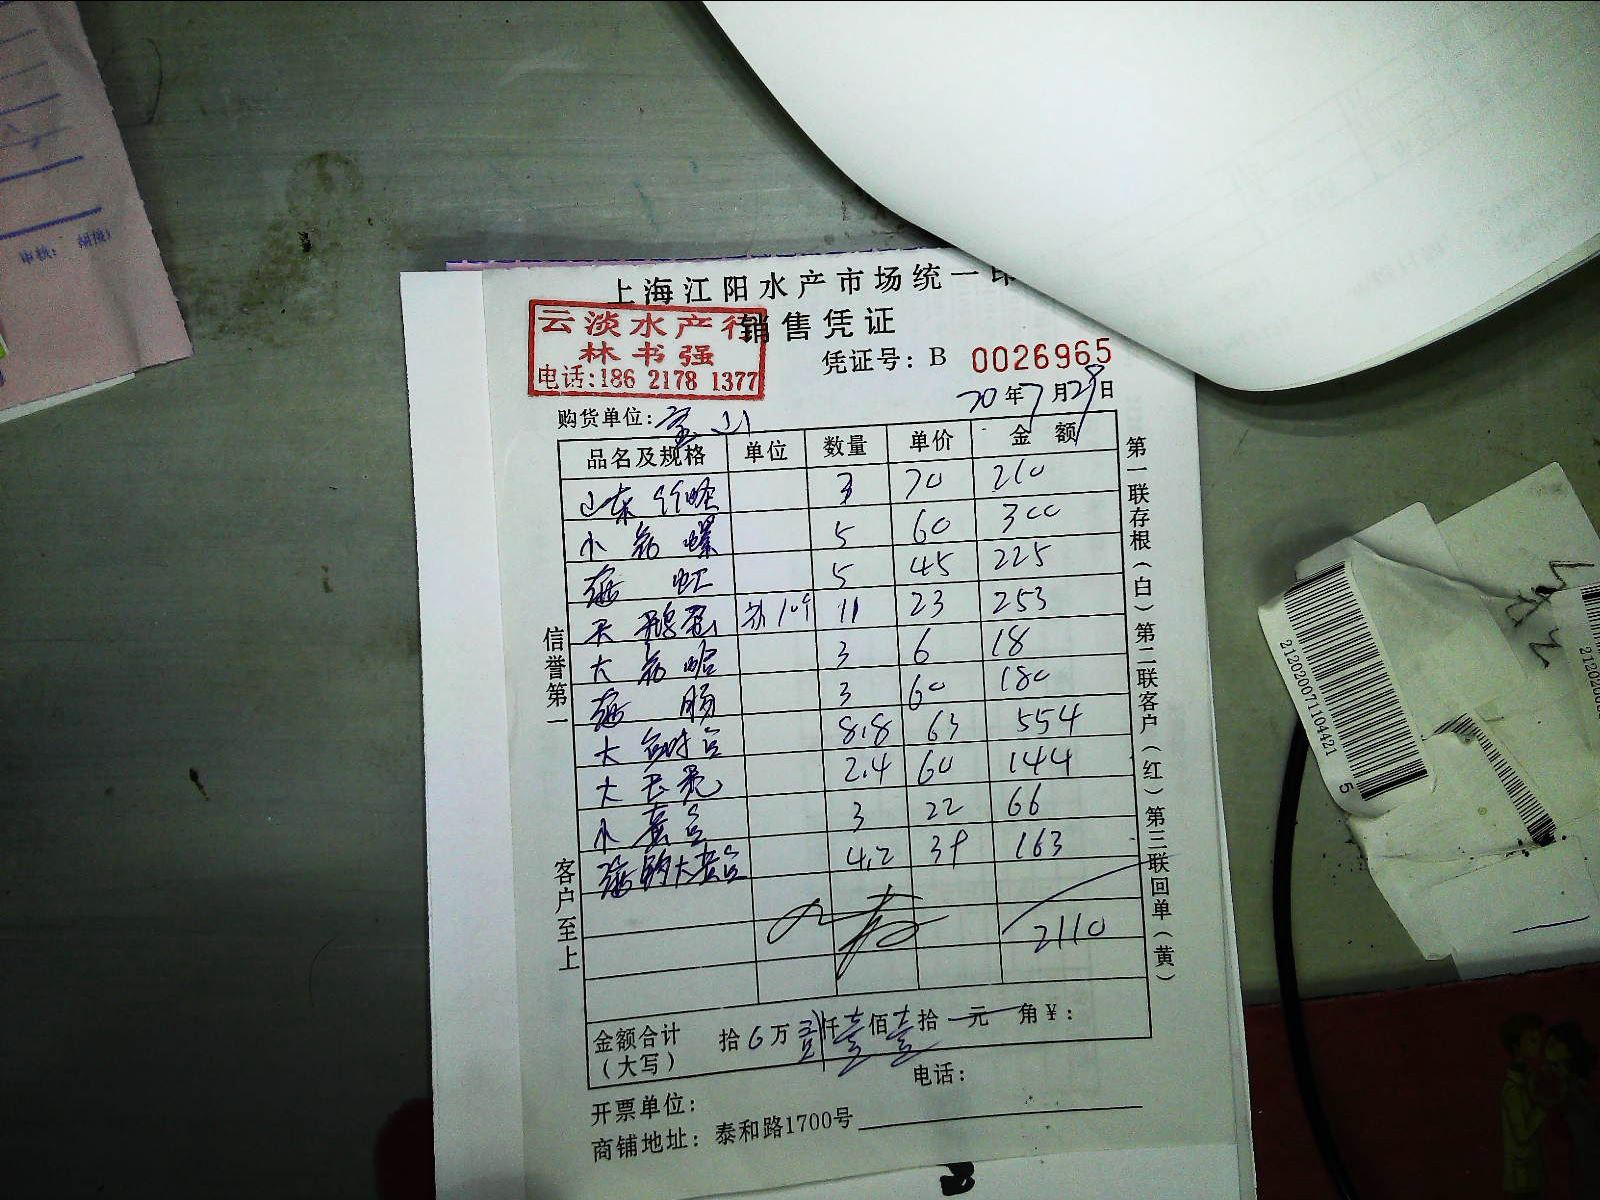 审核:
上海江阳水产市场统一印
销售凭证
云淡水产行
林书强
电话:186 2178 1377
凭证号: B 0026965
20年7月29日
购货单位: 宝山
品名及规格 单位 数量 单价 金额
山东竹蛏 3 70 210
小 螺 5 60 300
海虹 5 45 225
天鹅蛋 11 23 253
大 蛤 3 6 18
海肠 3 60 180
大 8.8 63 554
大 2.4 60 144
小 3 22 66
海 大 4.2 39 163
2110
金额合计(大写) 拾 万 贰仟壹佰壹拾 元 角 ¥:
电话:
开票单位:
商铺地址: 泰和路1700号
信誉第一
客户至上
第一联存根(白)第二联客户(红)第三联回单(黄)
212020071104421
5